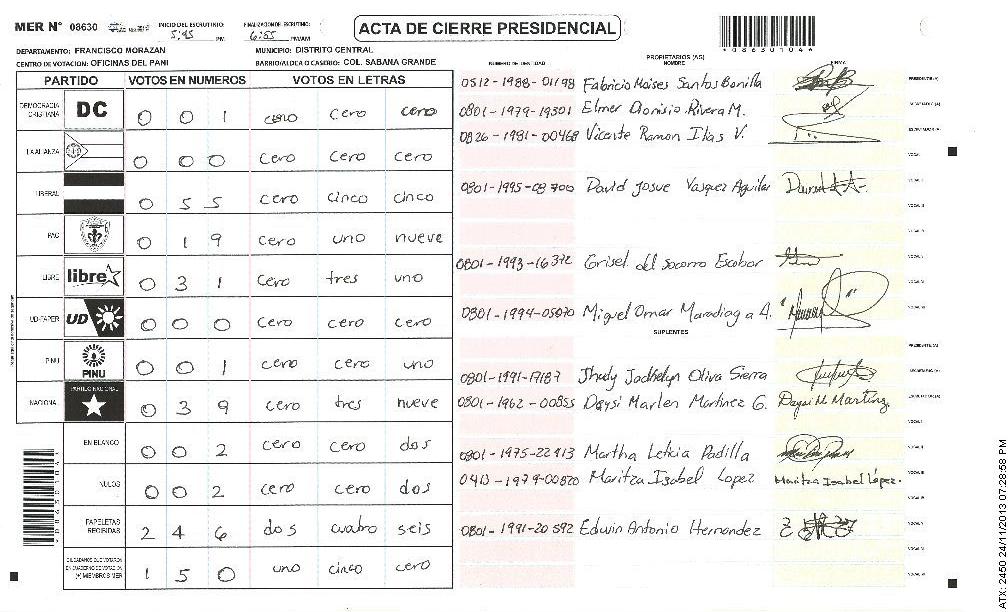 MER Nº 08630 INICIO DEL ESCRUTINIO: 5:45 PM FINALIZACION DEL ESCRUTINIO: 6:55 PM/AM
ACTA DE CIERRE PRESIDENCIAL
DEPARTAMENTO: FRANCISCO MORAZAN MUNICIPIO: DISTRITO CENTRAL
CENTRO DE VOTACION: OFICINAS DEL PANI BARRIO/ALDEA O CASERIO: COL. SABANA GRANDE
PARTIDO VOTOS EN NUMEROS VOTOS EN LETRAS
DEMOCRACIA CRISTIANA DC 0 0 1 cero cero cero
LA ALIANZA 0 0 0 cero cero cero
LIBERAL 0 5 5 cero cinco cinco
PAC 0 1 9 cero uno nueve
LIBRE libre 0 3 1 cero tres uno
UD-FAPER UD 0 0 0 cero cero cero
PINU PINU 0 0 1 cero cero uno
NACIONAL PARTIDO NACIONAL 0 3 9 cero tres nueve
EN BLANCO 0 0 2 cero cero dos
NULOS 0 0 2 cero cero dos
PAPELETAS RECIBIDAS 2 4 6 dos cuatro seis
CIUDADANOS QUE VOTARON EN CUADERNO DE VOTACION (+) MIEMBROS MER 1 5 0 uno cinco cero
NUMERO DE IDENTIDAD PROPIETARIOS (AS) NOMBRE FIRMA
0512-1988-01198 Fabricio Moises Santos Bonilla PRESIDENTE(A)
0801-1979-19301 Elmer Dionisio Rivera M. SECRETARIO (A)
0826-1981-00468 Vicente Ramon Ilias V. ESCRUTADOR (A)
VOCAL I
0801-1995-08700 David Josue Vasquez Aguilar VOCAL II
VOCAL III
0801-1993-16372 Grisel del Socorro Escobar
0801-1994-05070 Miguel Omar Maradiaga A.
SUPLENTES
PRESIDENTE (A)
0801-1991-19187 Jhudy Jackelyn Oliva Sierra SECRETARIO (A)
0801-1962-00855 Daysi Marlen Martinez G. Daysi M Martinez ESCRUTADOR(A)
VOCAL I
0801-1975-22413 Martha Leticia Padilla VOCAL II
0413-1979-00820 Maritza Isabel Lopez Maritza Isabel López. VOCAL III
0801-1991-20592 Edwin Antonio Hernandez
*08630104*
ATX: 2450 24/11/2013 07:28:58 PM